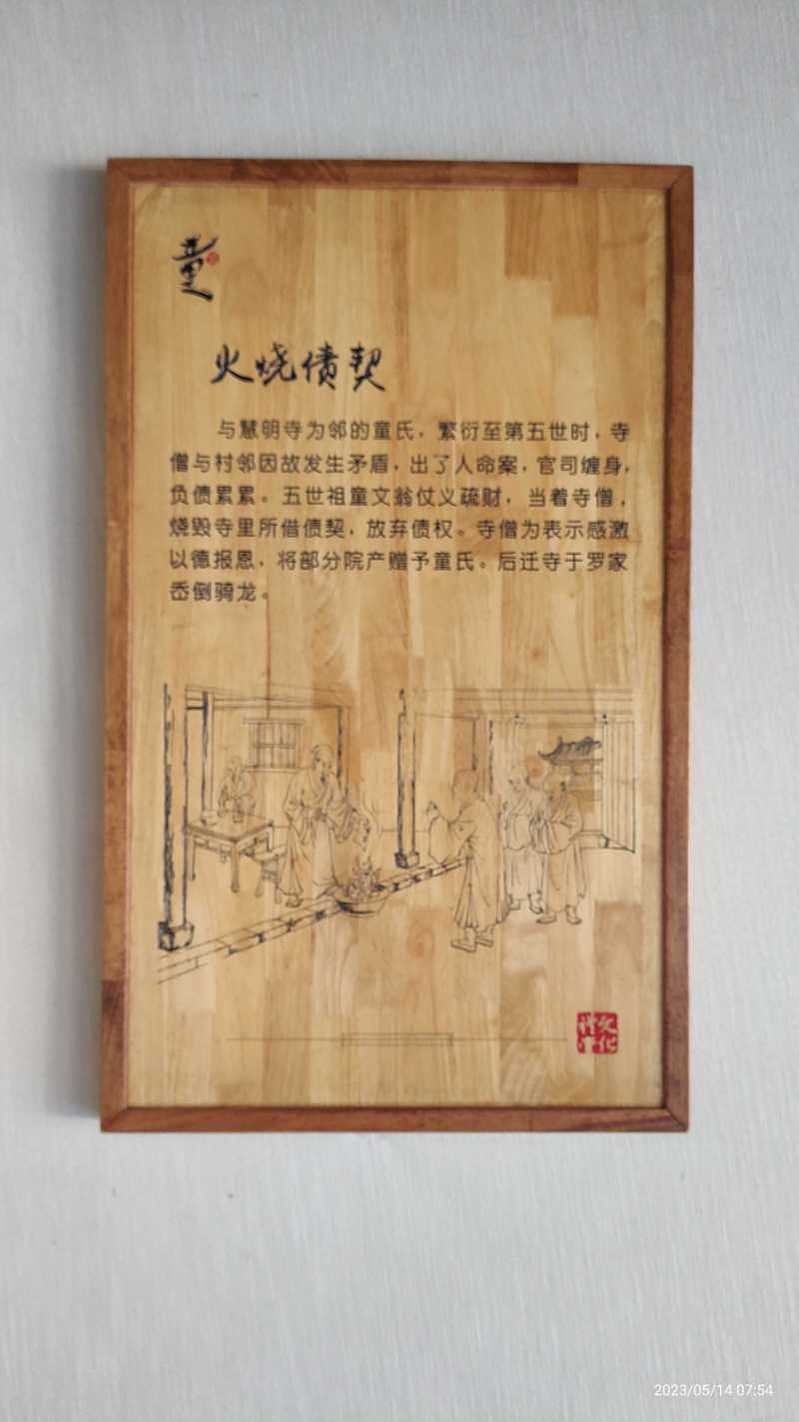 童
火烧债契
与慧明寺为邻的童氏，繁衍至第五世时，寺
僧与村邻因故发生矛盾，出了人命案，官司缠身，
负债累累。五世祖童文翁仗义疏财，当着寺僧，
烧毁寺里所借债契，放弃债权。寺僧为表示感激
以德报恩，将部分院产赠予童氏。后迁寺于罗家
岙倒骑龙。
文化
2023/05/14 07:54